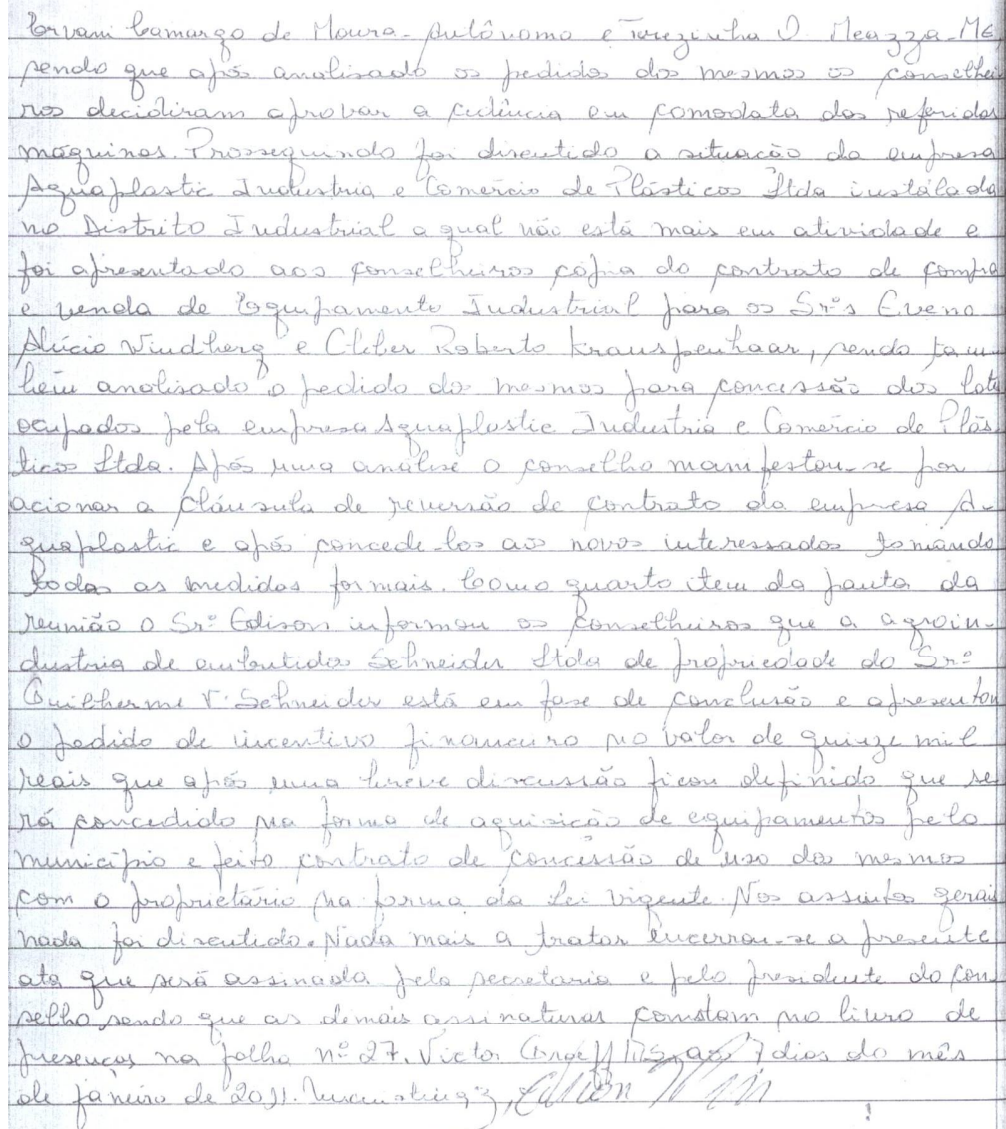 Ervani Camargo de Moura - Autônomo e Terezinha D. Meazza - ME
sendo que após analisado os pedidos dos mesmos os conselhei
ros decidiram aprovar a cedência em comodata das referidas
máquinas. Prosseguindo foi discutido a situação da empresa
Aquaplastic Industria e Comércio de Plásticos Ltda instalada
no Distrito Industrial a qual não está mais em atividade e
foi apresentado aos conselheiros cópia do contrato de compra
e venda de Equipamento Industrial para os Srºs Eveno
Alúcio Vindherg e Cleber Roberto Krauspenhaar, sendo tam
bém analisado o pedido dos mesmos para concessão dos lote
ocupados pela empresa Aquaplastic Industria e Comércio de Plás
ticos Ltda. Após uma análise o conselho manifestou-se por
acionar a Cláusula de reversão de contrato da empresa A-
quaplastic e após concede-los aos novos interessados tomando
todas as medidas formais. Como quarto item da pauta da
reunião o Srº Edison informou os conselheiros que a agroin-
dustria de embutidos Schneider Ltda de propriedade do Srº
Guilherme V. Schneider está em fase de conclusão e apresentou
o pedido de incentivo financeiro no valor de quinze mil
reais que após uma breve discussão ficou definido que se
rá concedido na forma de aquisição de equipamentos pelo
município e feito contrato de concessão de uso dos mesmos
com o proprietário na forma da Lei vigente. Nos assuntos gerais
nada foi discutido. Nada mais a tratar encerrou-se a presente
ata que será assinada pela secretaria e pelo presidente do con
selho sendo que as demais assinaturas constam no livro de
presenças na folha nº 27. Victor 7 dias do mês
de janeiro de 2011.